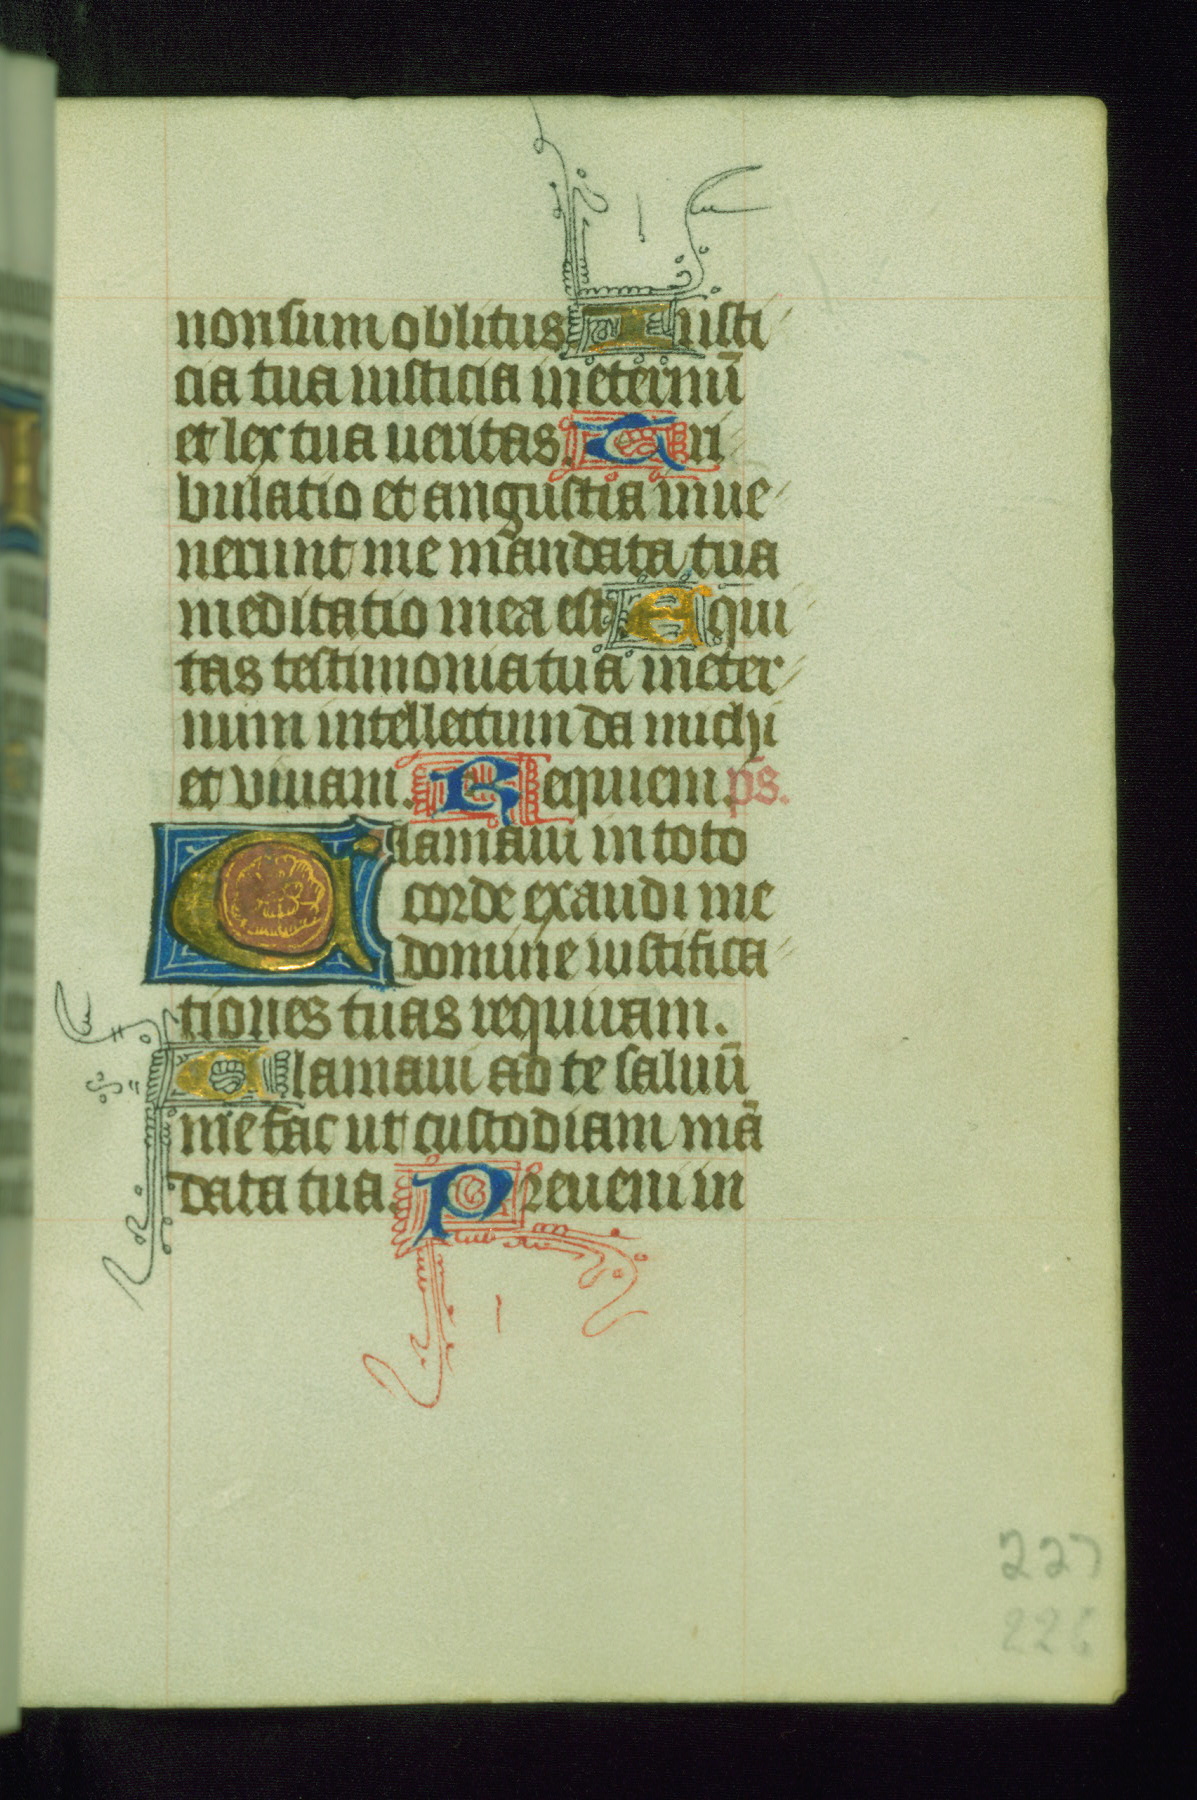 non sum oblitus Iusti
cia tua iusticia in eternū
et lex tua ueritas. Tri
bulatio et angustia inue
nerunt me mandata tua
meditatio mea est Equi
tas testimonia tua in eter
num intellectum da michi
et viuam. Requiem ps.
Clamaui in toto
corde exaudi me
domine iustifica
tiones tuas requiram.
Clamaui ad te saluū
me fac ut custodiam mā
data tua. Preueni in
227